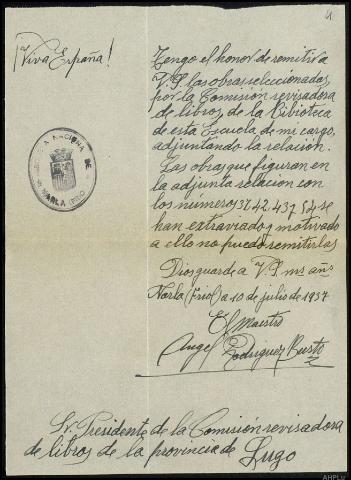 4
¡Viva España!
Tengo el honor de remitir a
V.S. las obras seleccionadas
por la Comisión revisadora
de libros, de la Bibioteca
de esta Escuela de mi cargo,
adjuntando la relación.
Las obras que figuran en
la adjunta relación con
los números 37, 42, 43 y 54 se
han extraviado y motivado
a ello no puedo remitirlas
Dios guarde a V.S. ms añs
Narla (Friol) a 10 de julio de 1937
El Maestro
Angel Rodriguez Busto
NACIONAL DE
NARLA (FRIOL)
Sr. Presidente de la Comisión revisadora
de libros de la provincia de Lugo
AHPLu